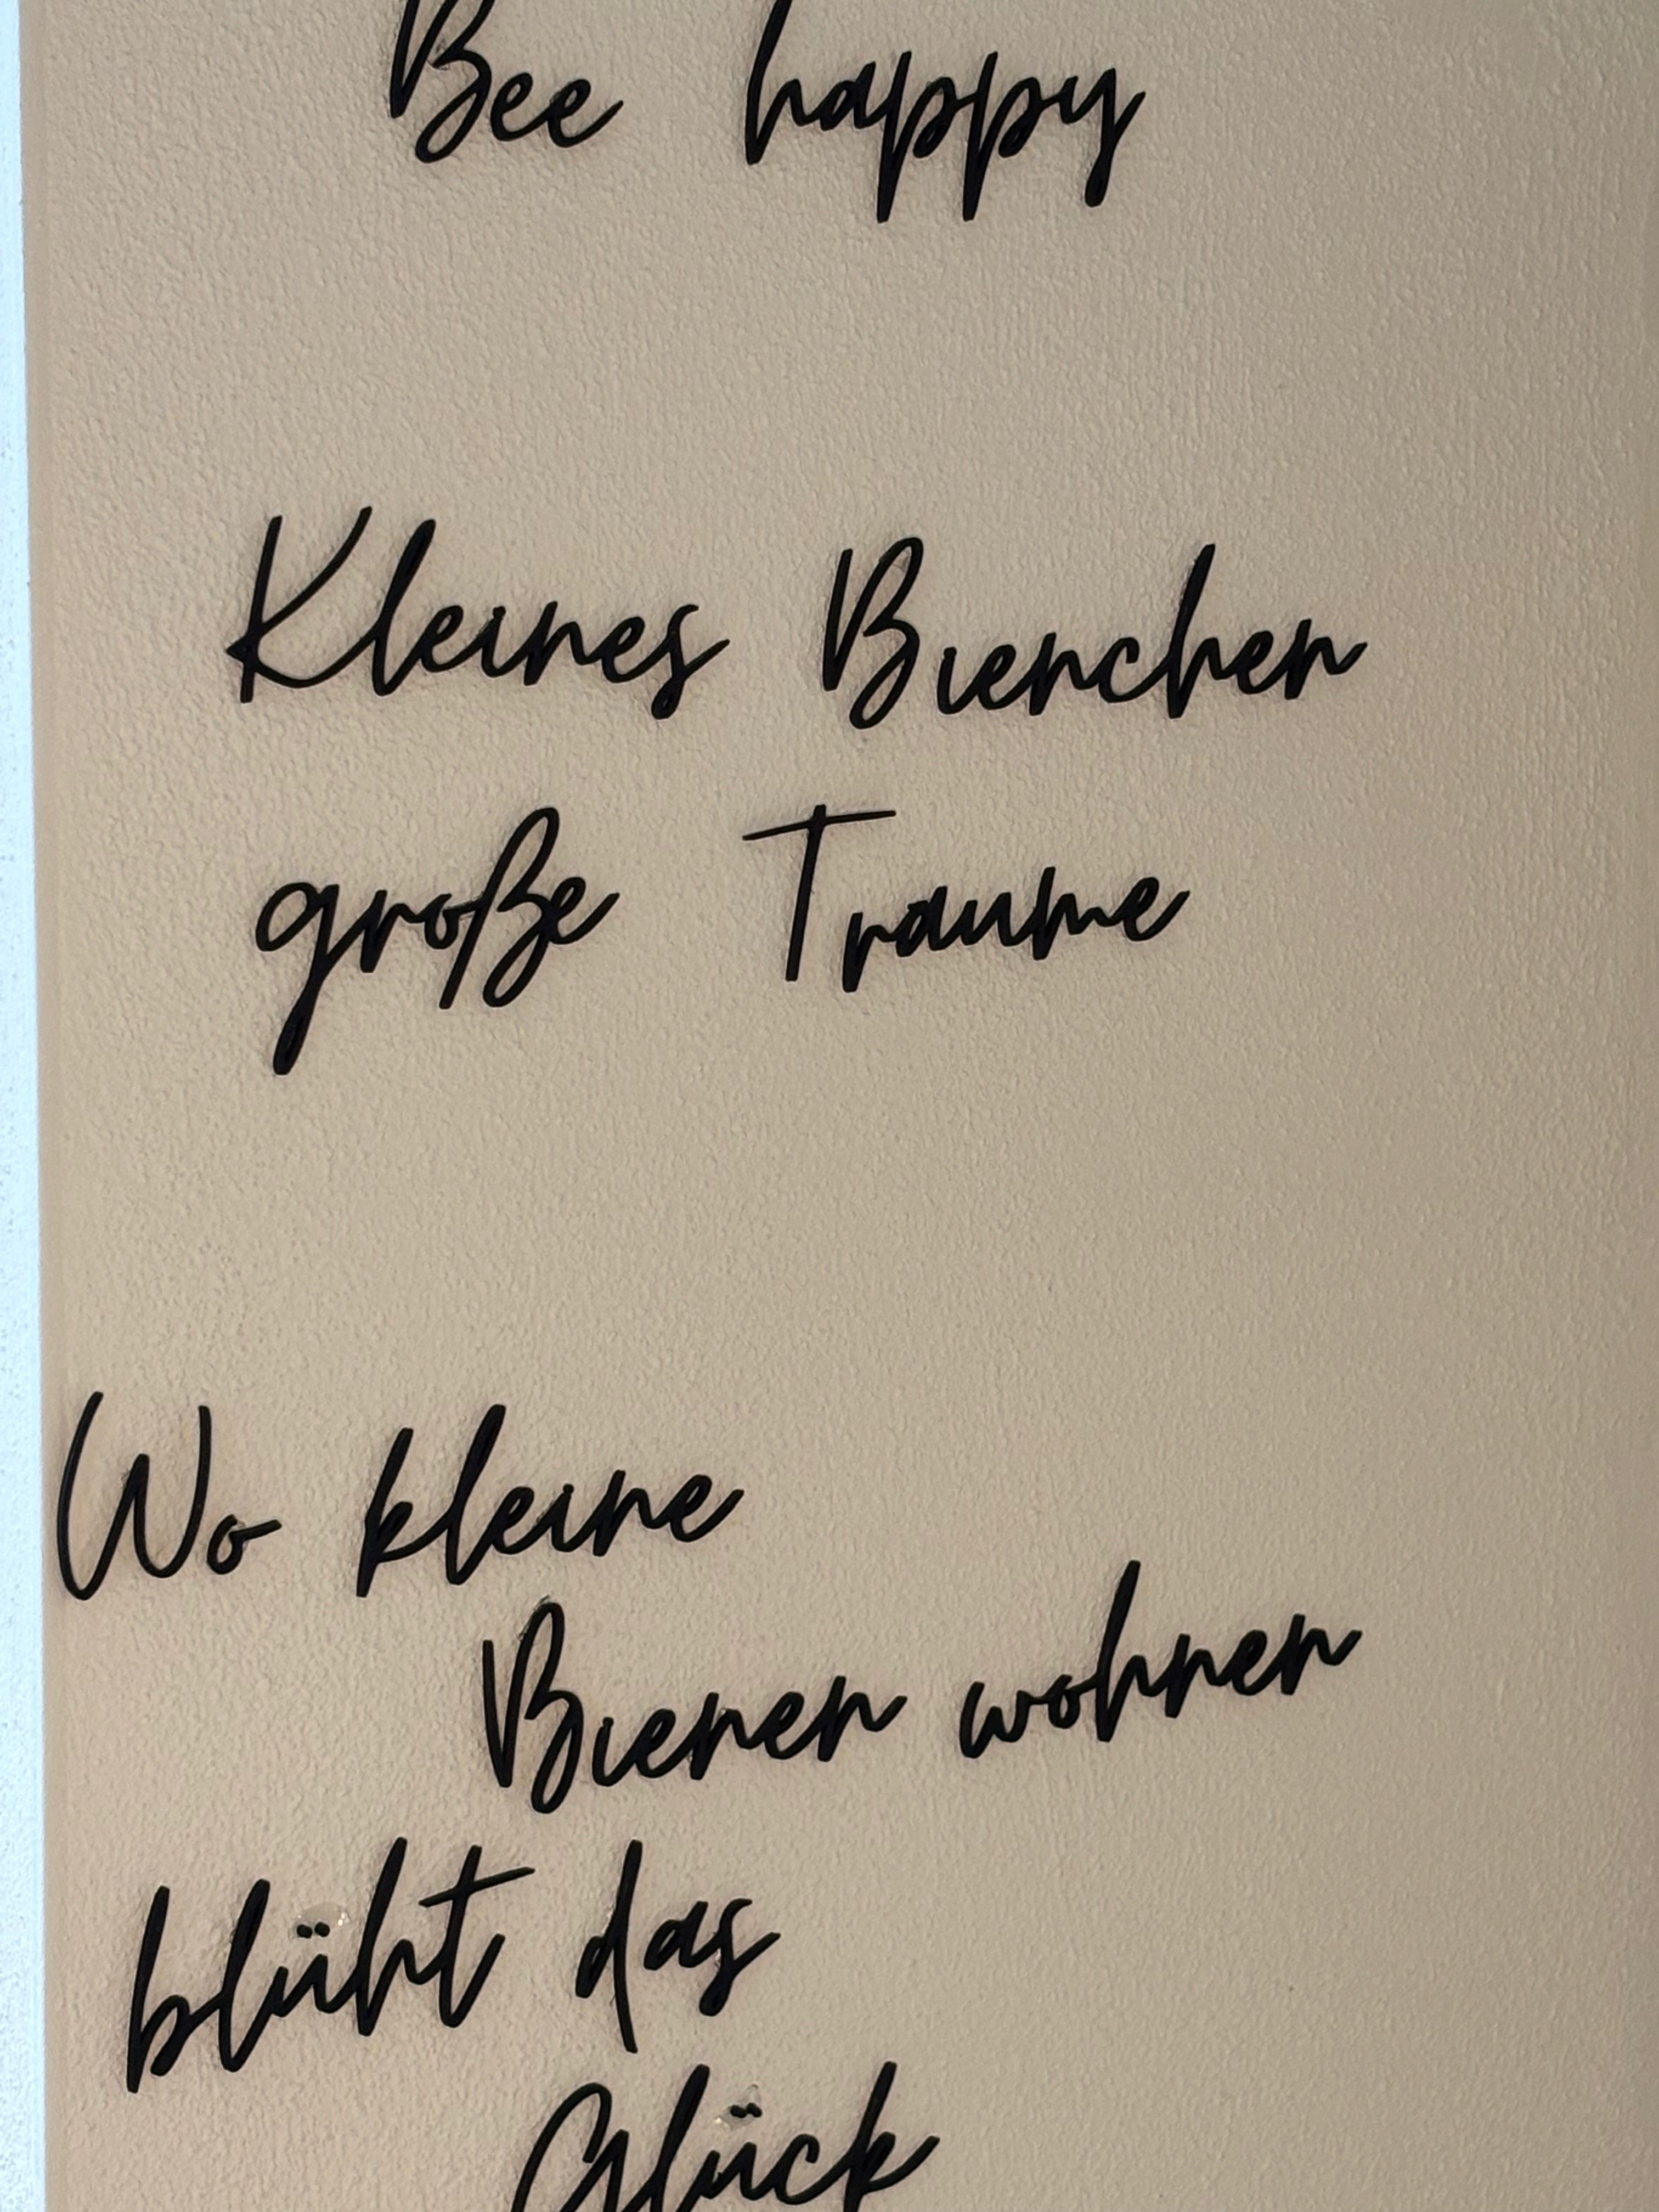 Bee happy
Kleines Bienchen
große Traume
Wo kleine
Bienen wohnen
blüht das
Glück